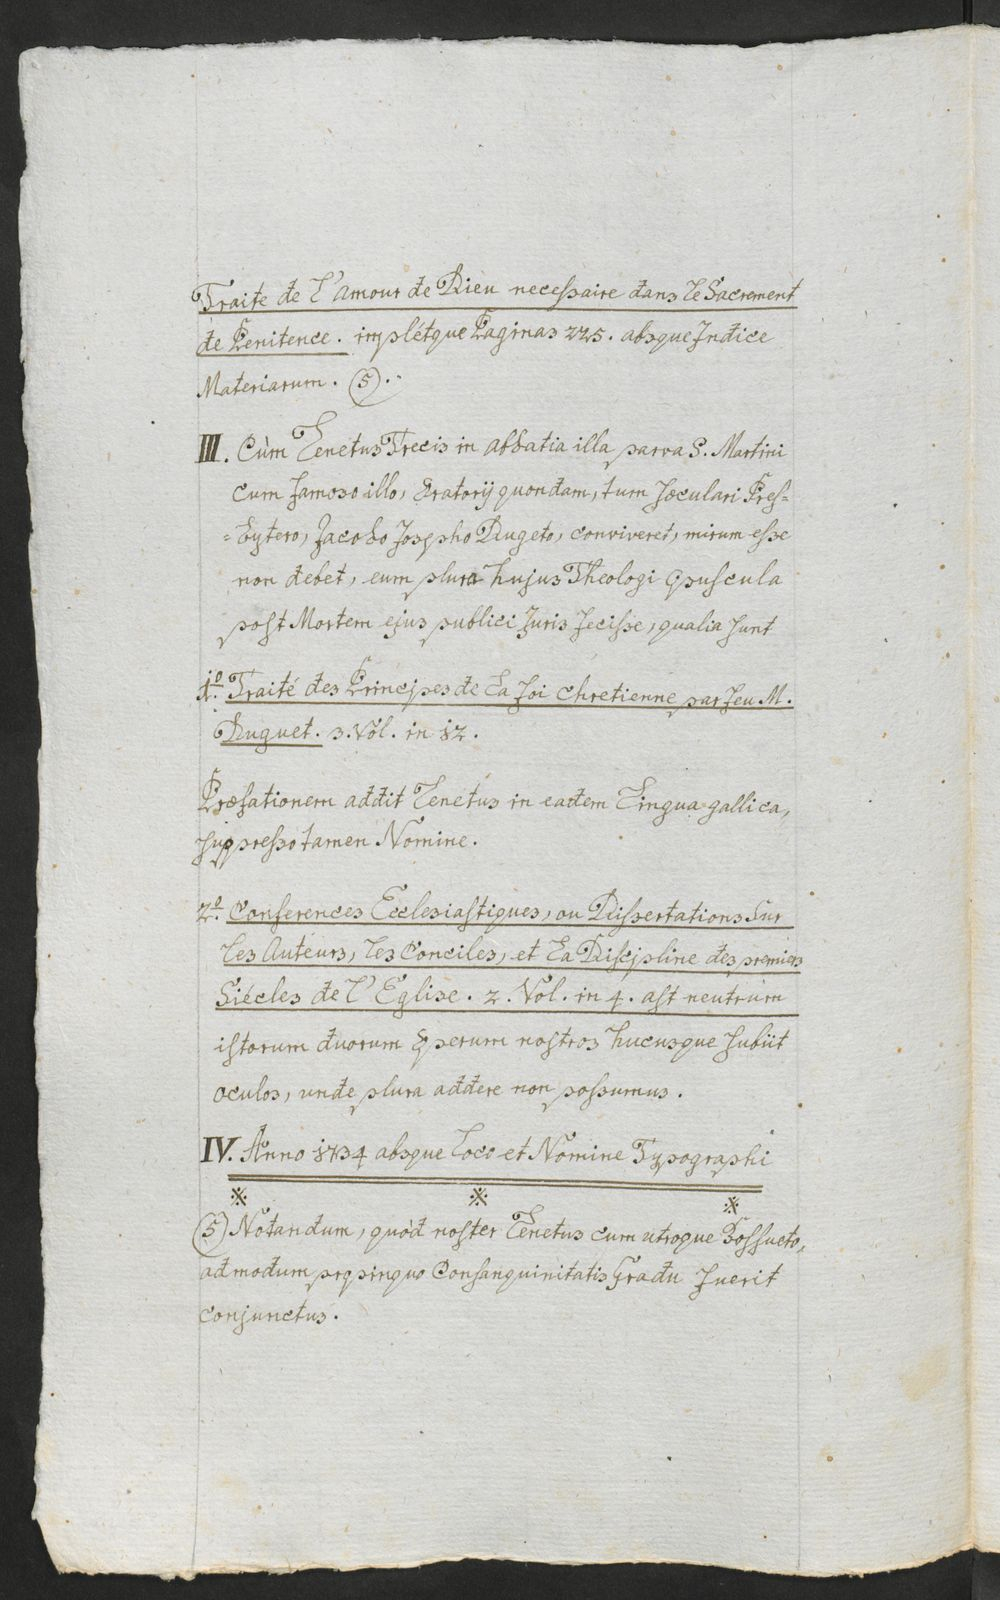 Traite de l'amour de Dieu necessaire dans le Sacrement
de Penitence. implétque Paginas 225. absque Indice
Materiarum. (5).
III. Cùm Tenetus Trecis in abbatia illa parva S. Martini
cum famoso illo, Oratorij quondam, tum sæculari Pres=
=bytero, Jacobo Josepho Dugeto, conviveret, mirum esse
non debet, eum plura hujus Theologi Opuscula
post Mortem ejus publici Juris fecisse, qualia sunt
1º. Traité des Principes de La foi chretienne par feu M.
Duguet. 3. Vol. in 12.
Præfationem addit Tenetus in eadem Lingua gallica,
suppresso tamen Nomine.
2º. Conferences Ecclesiastiques, ou Dissertations sur
les Auteurs, les Conciles, et La Discipline des premiers
Siécles de l'Eglise. 2. Vol. in 4. ast neutrum
istorum duorum Operum nostros hucusque subiit
oculos, unde plura addere non possumus.
IV. Anno 1734 absque loco et Nomine Typographi
(5) Notandum, quòd noster Tenetus cum utroque Bossueto,
admodum propinquo Consanguinitatis Gradu fuerit
conjunctus.